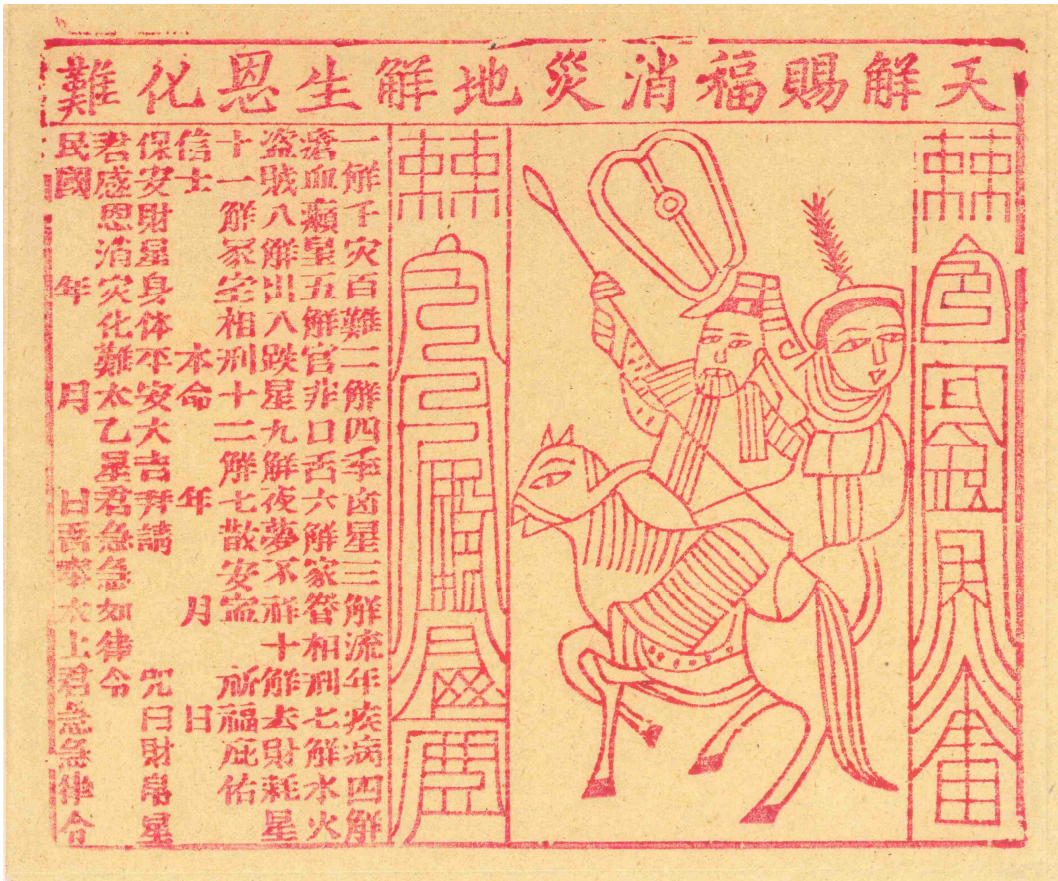 天解賜福消災地解生恩化難
一解千灾百難二解四季卤星三解流年疾病四解
瘡血癲星五解官非口舌六解家眷相刑七解水火
盜賊八解出八跌星九解夜夢不祥十解去財耗星
十一解家宅相刑十二解七散安寧 祈福庇佑
信士 本命 年 月 日
保安財星身体平安大吉拜請 咒曰財帛星
君感恩消灾化難太乙星君急急如律令
民國 年 月 日吾奉太上君急急律令